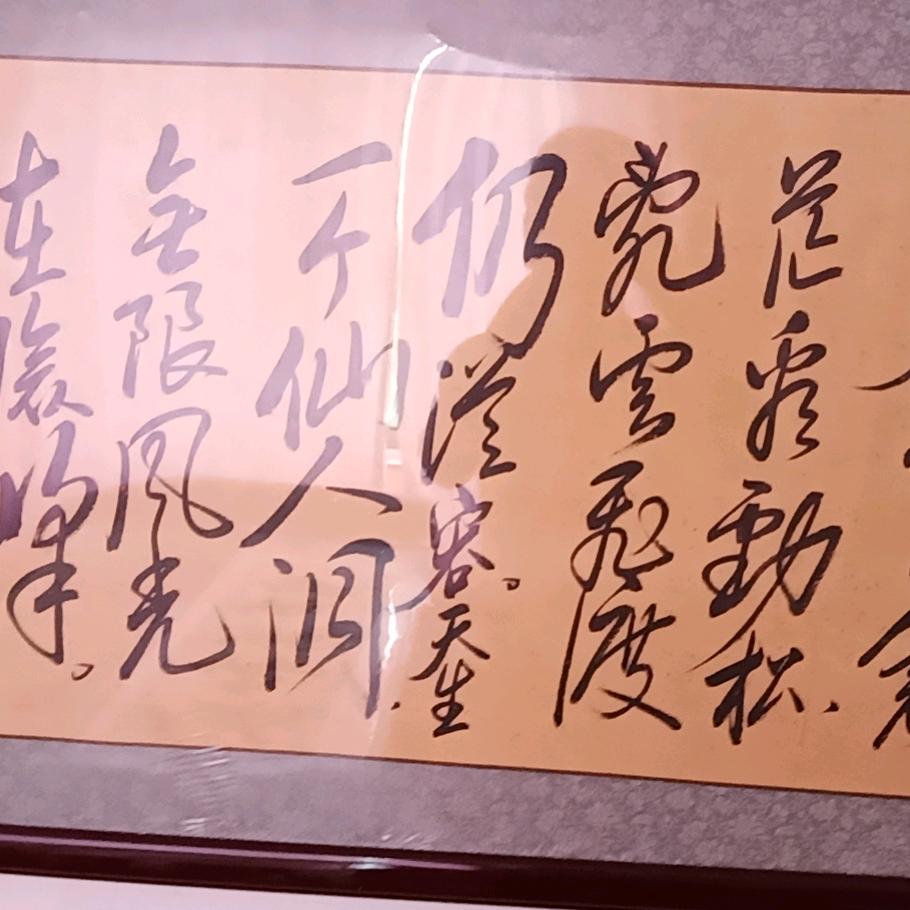 茫看劲松，
乱云飞渡
仍从容。天生
一个仙人洞，
无限风光
在险峰。